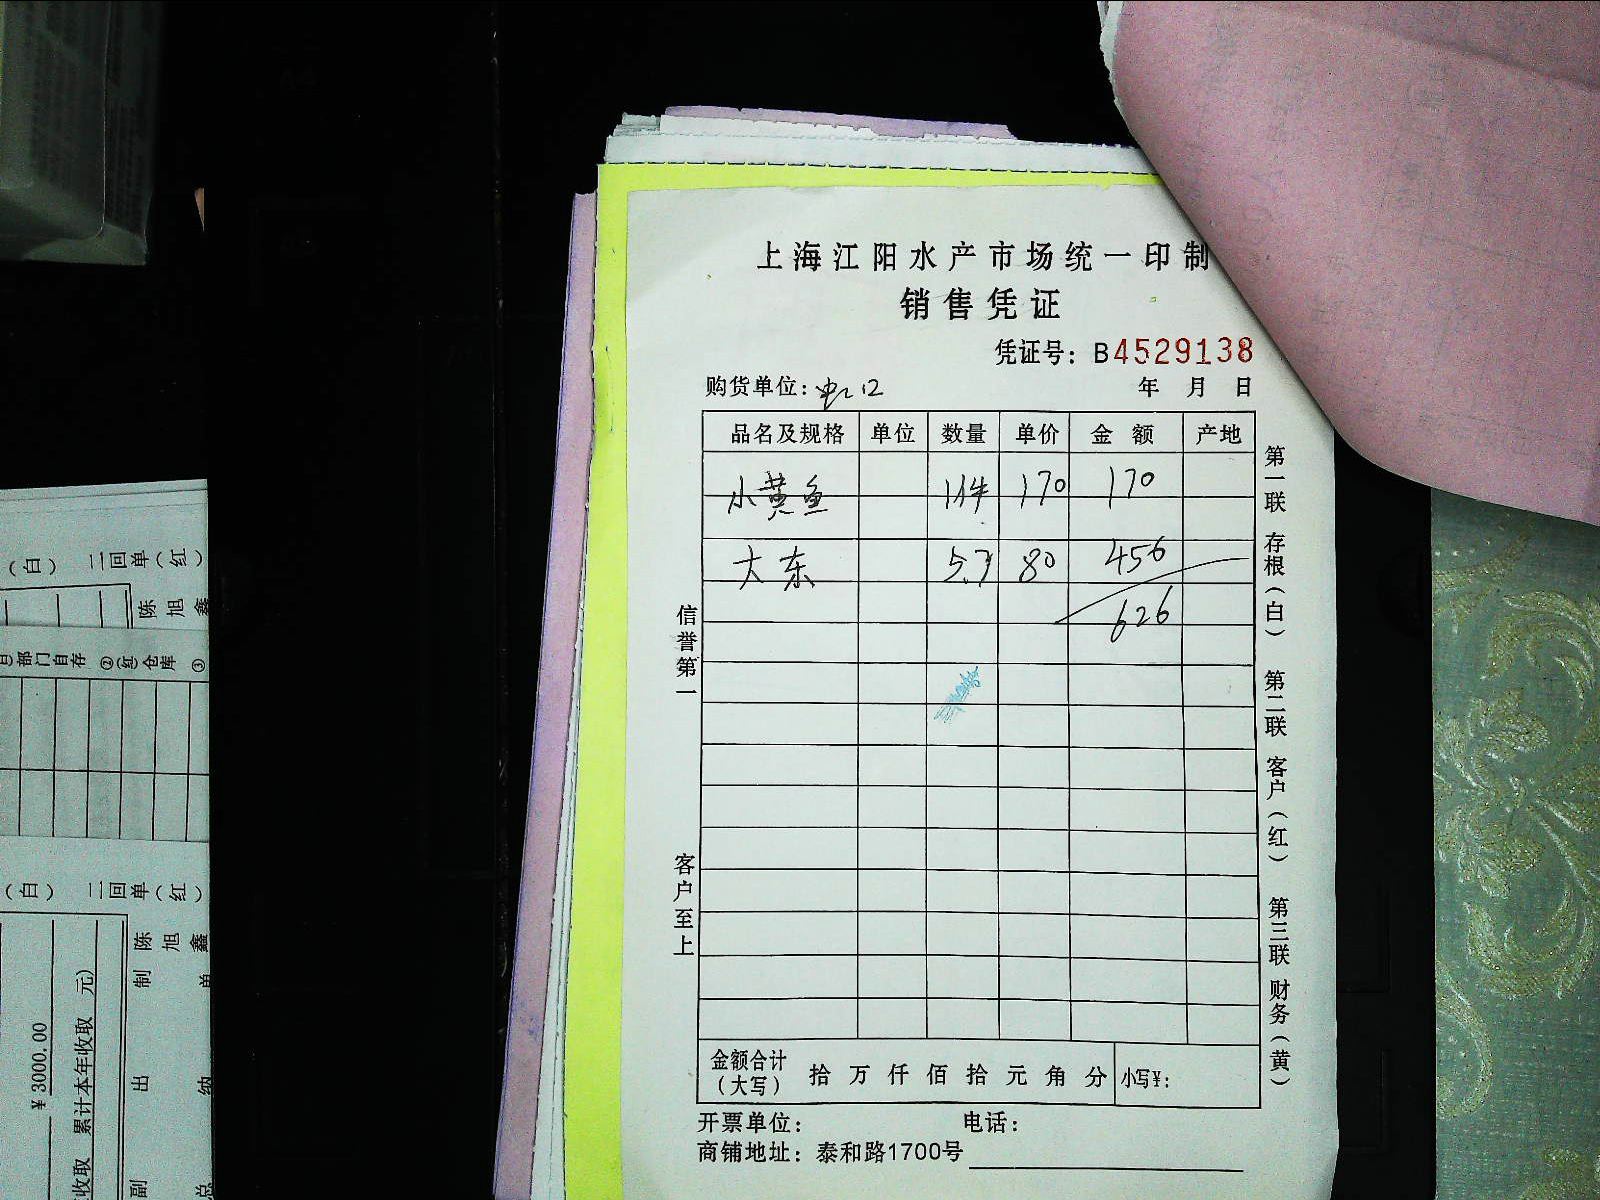 上海江阳水产市场统一印制
销售凭证
凭证号：B4529138
购货单位：虹口 年 月 日
品名及规格 单位 数量 单价 金额 产地
小黄鱼 1件 170 170
大东 5.7 80 456
626
信誉第一
客户至上
第一联 存根（白） 第二联 客户（红） 第三联 财务（黄）
金额合计（大写） 拾 万 仟 佰 拾 元 角 分 小写¥：
开票单位： 电话：
商铺地址：泰和路1700号
（白） 二回单（红）
陈旭鑫
部门自存 ②（红）仓库 ③
（白） 二回单（红）
陈旭鑫
制 单
¥3000.00
收取 累计本年收取 元）
出纳
副总